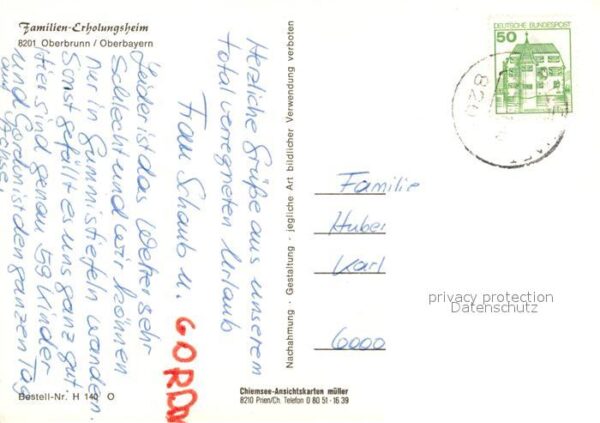 Familien-Erholungsheim
8201 Oberbrunn / Oberbayern
Herzliche Grüße aus unserem
total verregneten Urlaub
Frau Schaub u. GORDON
Leider ist das Wetter sehr
schlecht und wir können
nur in Gummistiefeln wandern.
Sonst gefällt es uns ganz gut.
Hier sind genau 59 Kinder
und Gordon ist den ganzen Tag
auf Achse.
Bestell-Nr. H 140 O
Nachahmung · Gestaltung · jegliche Art bildlicher Verwendung verboten
Chiemsee-Ansichtskarten müller
8210 Prien/Ch. Telefon 0 80 51 - 16 39
DEUTSCHE BUNDESPOST
50
820
Familie
Huber
Karl
6000
privacy protection
Datenschutz